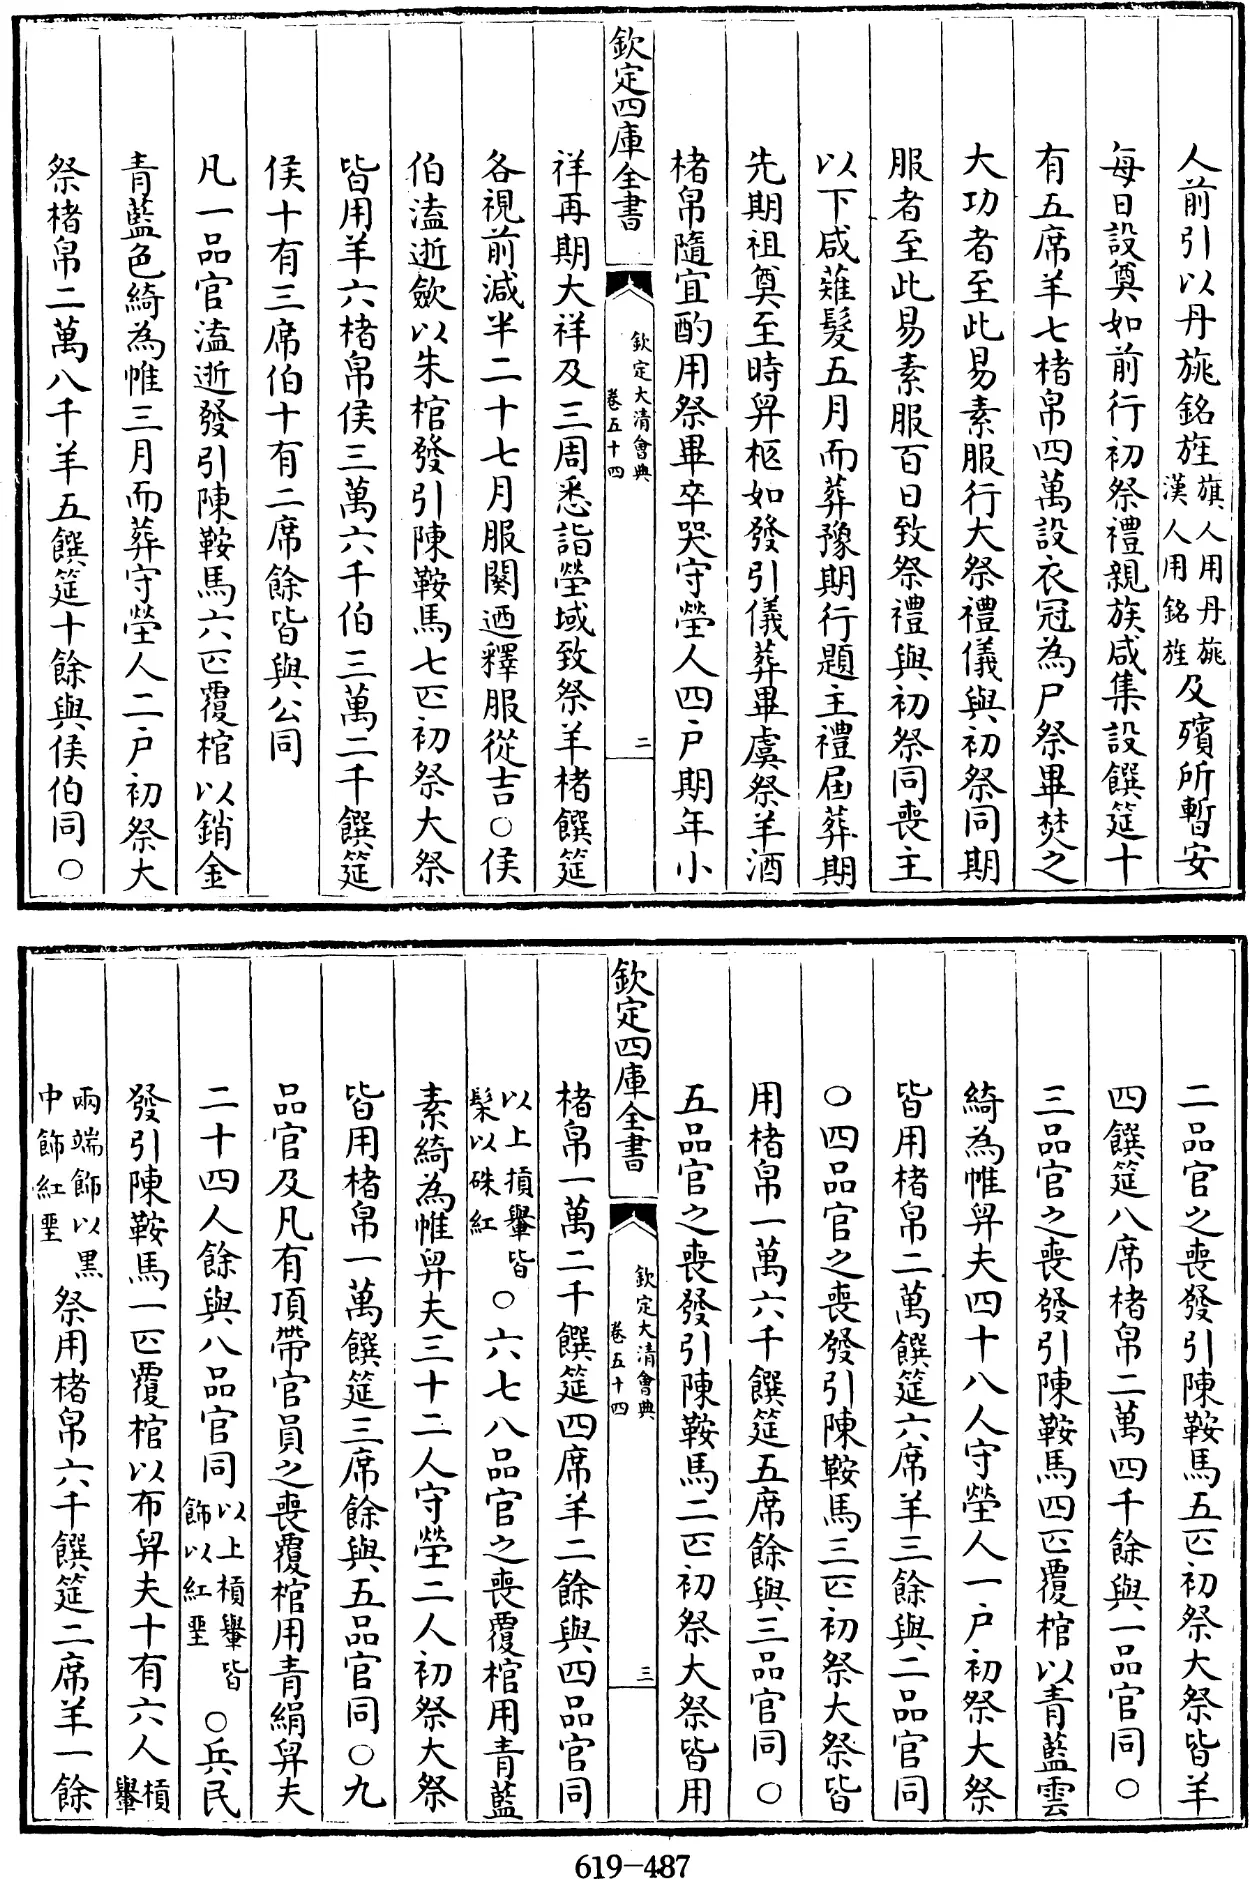 人前引以丹旐銘旌旗人用丹旐漢人用銘旌及殯所暫安
每日設奠如前行初祭禮親族咸集設饌筵十
有五席羊七楮帛四萬設衣冠為尸祭畢焚之
大功者至此易素服行大祭禮儀與初祭同期
服者至此易素服百日致祭禮與初祭同喪主
以下咸薙髮五月而葬豫期行題主禮屆葬期
先期祖奠至時舁柩如發引儀葬畢虞祭羊酒
楮帛隨宜酌用祭畢卒哭守塋人四戶期年小
欽定四庫全書
欽定大清會典
卷五十四
二
祥再期大祥及三周悉詣塋域致祭羊楮饌筵
各視前減半二十七月服闋迺釋服從吉○侯
伯溘逝歛以朱棺發引陳鞍馬七匹初祭大祭
皆用羊六楮帛侯三萬六千伯三萬二千饌筵
侯十有三席伯十有二席餘皆與公同
凡一品官溘逝發引陳鞍馬六匹覆棺以銷金
青藍色綺為帷三月而葬守塋人二戶初祭大
祭楮帛二萬八千羊五饌筵十餘與侯伯同○
二品官之喪發引陳鞍馬五匹初祭大祭皆羊
四饌筵八席楮帛二萬四千餘與一品官同○
三品官之喪發引陳鞍馬四匹覆棺以青藍雲
綺為帷舁夫四十八人守塋人一戶初祭大祭
皆用楮帛二萬饌筵六席羊三餘與二品官同
○四品官之喪發引陳鞍馬三匹初祭大祭皆
用楮帛一萬六千饌筵五席餘與三品官同○
五品官之喪發引陳鞍馬二匹初祭大祭皆用
欽定四庫全書
欽定大清會典
卷五十四
三
楮帛一萬二千饌筵四席羊二餘與四品官同
以上槓轝皆髹以硃紅○六七八品官之喪覆棺用青藍
素綺為帷舁夫三十二人守塋二人初祭大祭
皆用楮帛一萬饌筵三席餘與五品官同○九
品官及凡有頂帶官員之喪覆棺用青絹舁夫
二十四人餘與八品官同以上槓轝皆飾以紅堊○兵民
發引陳鞍馬一匹覆棺以布舁夫十有六人槓轝
兩端飾以黑中飾紅堊祭用楮帛六千饌筵二席羊一餘
619-487